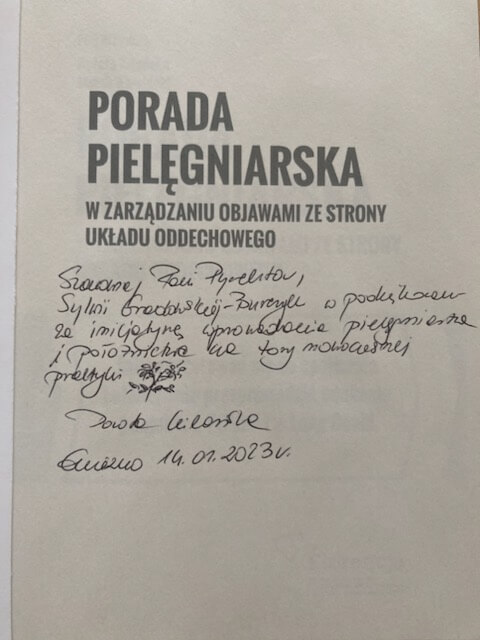 PORADA
PIELĘGNIARSKA
W ZARZĄDZANIU OBJAWAMI ZE STRONY
UKŁADU ODDECHOWEGO
Szanownej Pani Dyrektor,
Sylwii w podziękowaniu
za inicjatywę wprowadzenia pielęgniarstwa
i położnictwa na tory nowoczesnej
praktyki
Dorota
Gniezno 14.01.2023 r.